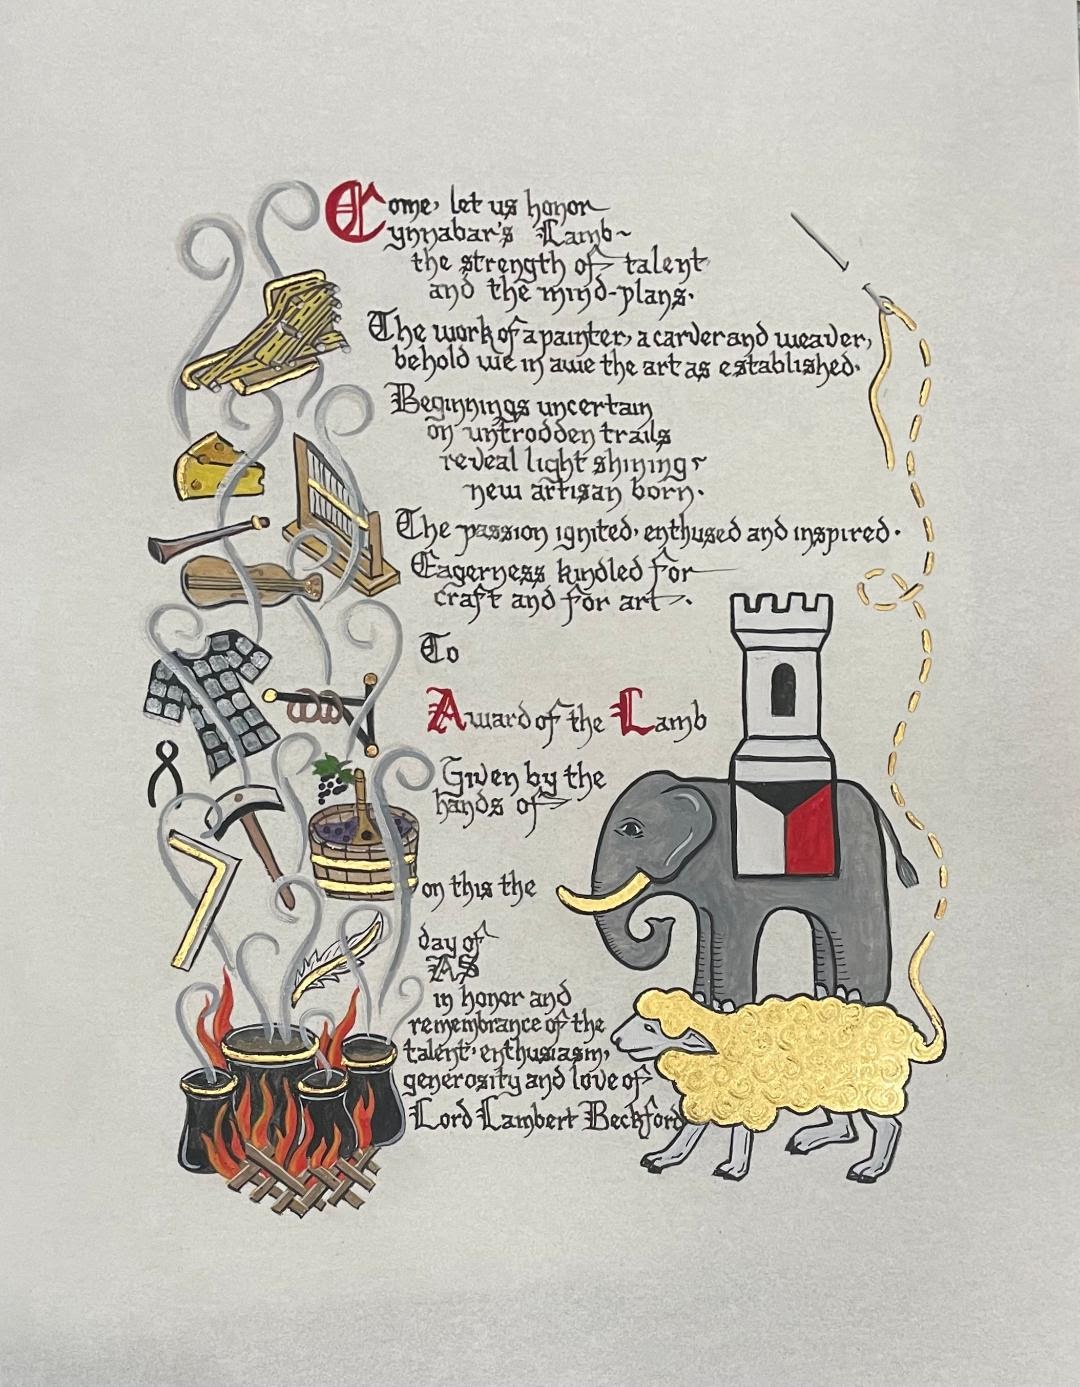 Come, let us honor
Cynnabar's Lamb~
the strength of talent
and the mind-plans.
The work of a painter, a carver and weaver,
behold we in awe the art as established.
Beginnings uncertain
on untrodden trails
reveal light shining
new artisan born.
The passion ignited, enthused and inspired.
Eagerness kindled for
craft and for art.
To
Award of the Lamb
Given by the
hands of
on this the
day of
AS
in honor and
remembrance of the
talent, enthusiasm,
generosity and love of
Lord Lambert Beckford